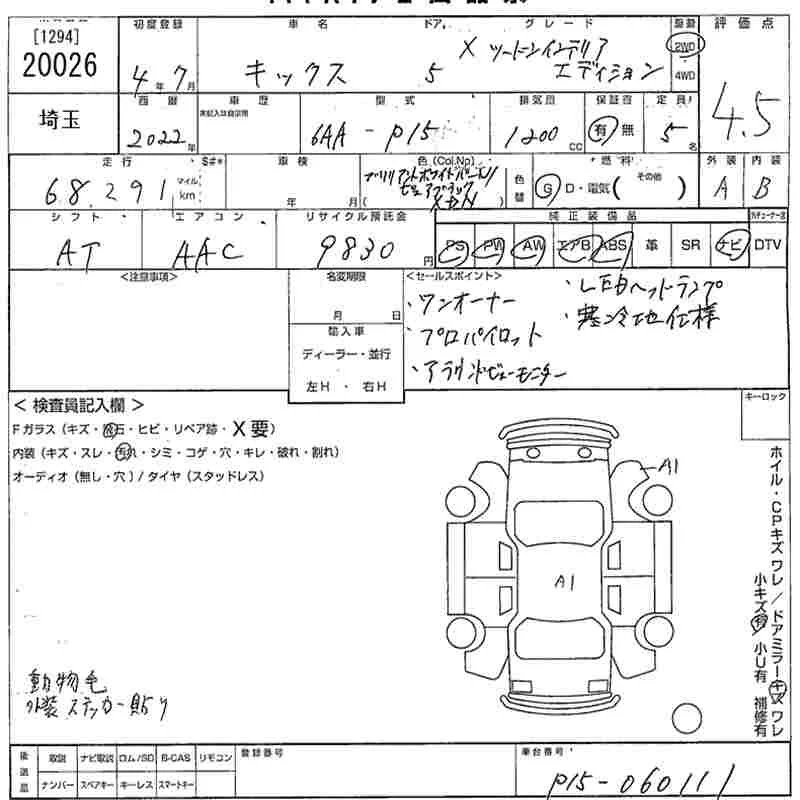 [1294]
20026
埼玉
初度登録
4年 7月
車名
キックス
ドア
5
グレード
X ツートーンインテリア
エディション
駆動
2WD
4WD
評価点
4.5
西暦
2022年
車歴
未記入は自家用
型式
6AA-P15
排気量
1200 CC
保証書
有 無
定員
5名
走行
68,291
マイル
km
$#*
車検
年 月
色(Col,No)
ブリリアントホワイトパール/
ピュアブラック
(XAN)
色替
燃料
G D・電気( その他 )
外装
A
内装
B
シフト
AT
エアコン
AAC
リサイクル預託金
9830円
純正装備品
PS PW AW エアB ABS 革 SR ナビ DTV
<注意事項>
名変期限
月 日
輸入車
ディーラー・並行
左H ・ 右H
<セールスポイント>
・ワンオーナー
・プロパイロット
・アラウンドビューモニター
・LEDヘッドランプ
・寒冷地仕様
<検査員記入欄>
Fガラス(キズ・飛石・ヒビ・リペア跡・X要)
内装(キズ・スレ・汚れ・シミ・コゲ・穴・キレ・破れ・割れ)
オーディオ(無し・穴)/タイヤ(スタッドレス)
動物毛
外装ステッカー貼り
A1
A1
キーロック
ホイル・CPキズ ワレ/ドアミラーキズ ワレ
小キズ有 小U有 補修有
後送品
取説 ナビ取説 ロム/SD B-CAS リモコン
ナンバー スペアキー キーレス スマートキー
登録番号
車台番号
P15-060111